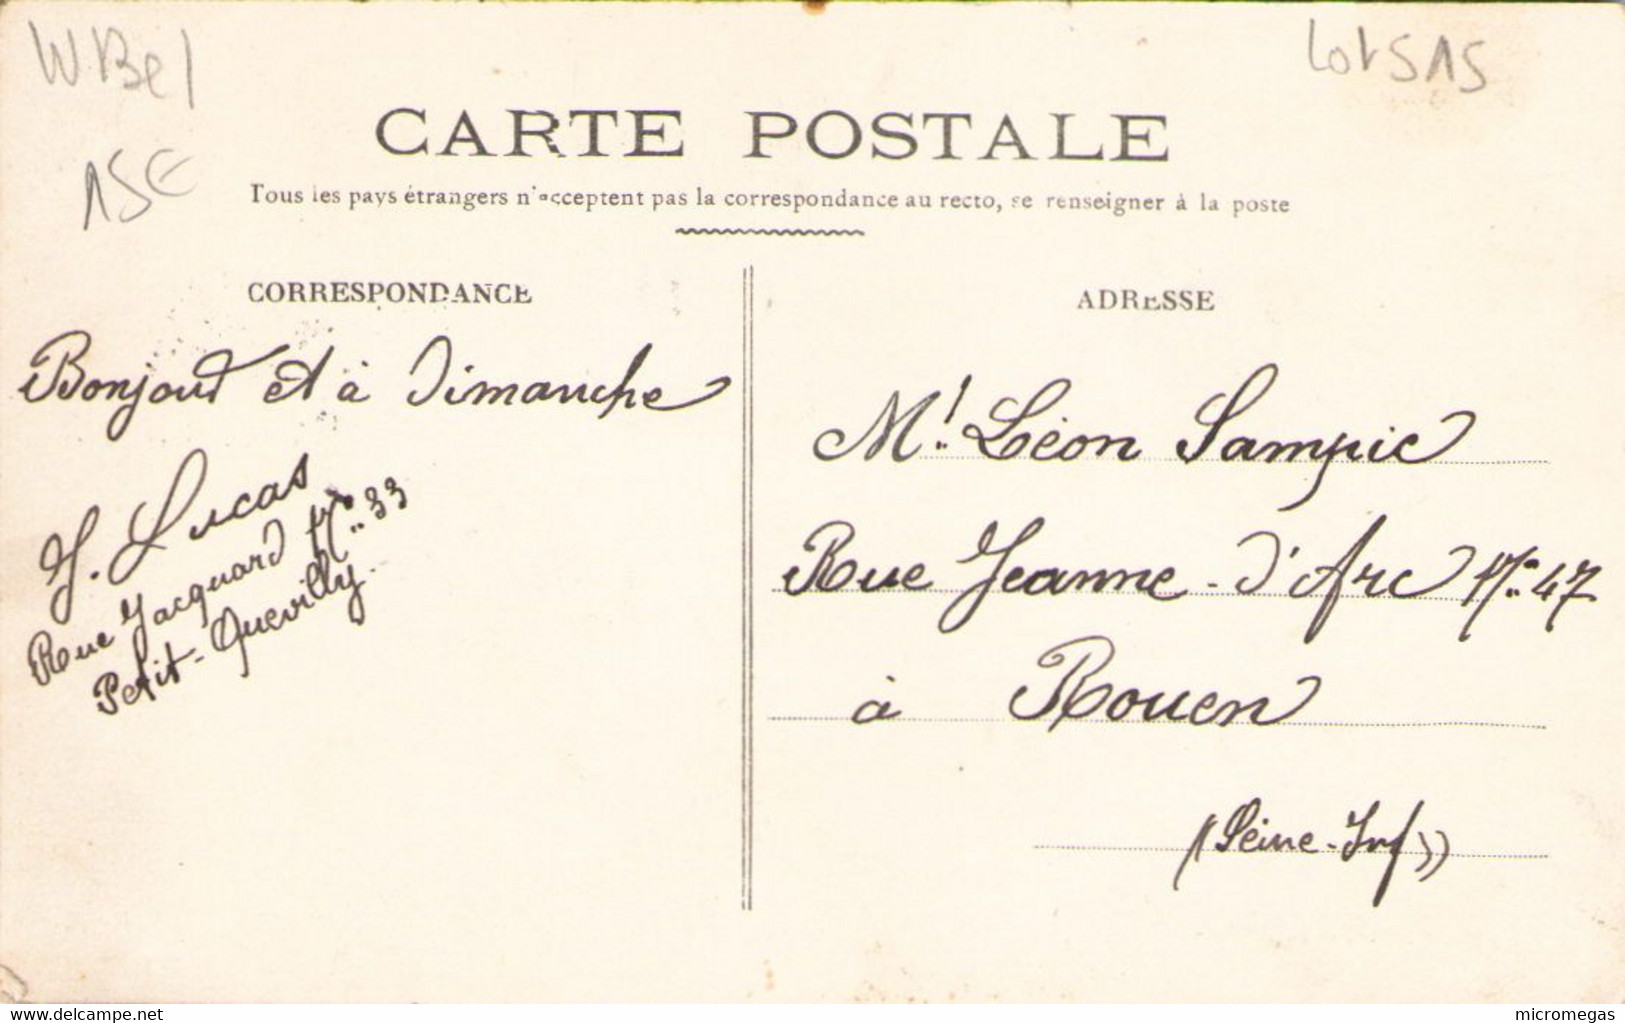 W.Bel
Lot S15
15€
CARTE POSTALE
Tous les pays étrangers n'acceptent pas la correspondance au recto, se renseigner à la poste
CORRESPONDANCE
Bonjour et à Dimanche
J. Lucas
Rue Jacquard No. 33
Petit-Quevilly.
ADRESSE
Mr. Léon Sampic
Rue Jeanne-d'Arc No. 47
à Rouen
(Seine-Inf))
www.delcampe.net
micromegas